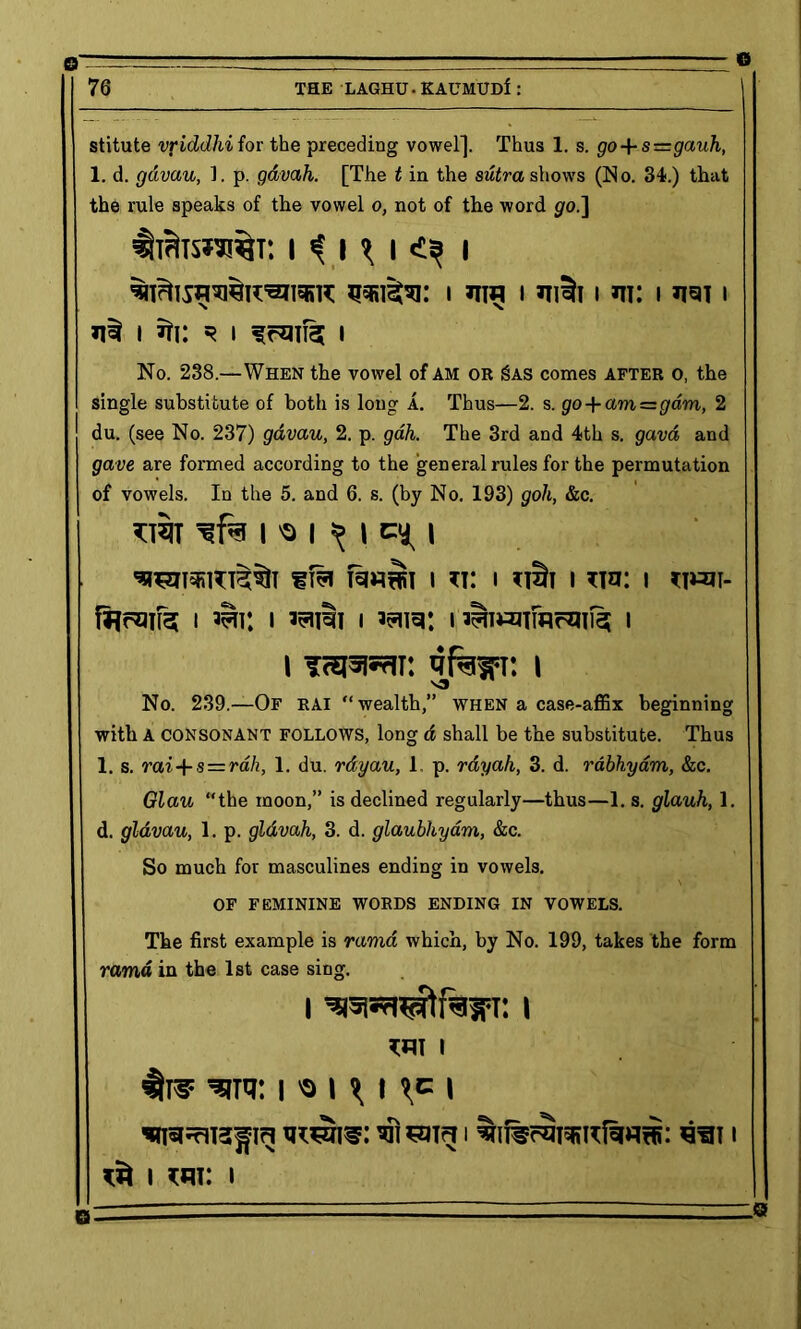 76 THE LAGHU-KAUMUDÍ:
stitute vṛiddhi for the preceding vowel]. Thus 1. s. go + s=gauh,
1. d. gávau, 1. p. gávah. [The t in the sútra shows (No. 34.) that
the rule speaks of the vowel o, not of the word go.]
औतोऽम्शसोः । ६ । १ । ९३ ।
ओतोऽम्शसोरचि आकार एकादेशः । गाम् । गावौ । गाः । गवा ।
गवे । गोः २ । इत्यादि ।
No. 238.—WHEN the vowel of AM OR ŚAS comes AFTER O, the
single substitute of both is long Á. Thus—2. s. go+am=gám, 2
du. (see No. 237) gávau, 2. p. gáh. The 3rd and 4th s. gavá and
gave are formed according to the general rules for the permutation
of vowels. In the 5. and 6. s. (by No. 193) goh, &c.
रायो हलि । ७ । २ । ८५ ।
अस्याकारादेशो हलि विभक्तौ । राः । रायौ । रायः । राभ्या-
मित्यादि । ग्लौः । ग्लावौ । ग्लावः । ग्लौभ्यामित्यादि ।
। इत्यजन्ताः पुंलिङ्गाः ।
No. 239.—OF RAI "wealth," WHEN a case-affix beginning
with A CONSONANT FOLLOWS, long á shall be the substitute. Thus
1. s. rai+s=ráh, 1. du. ráyau, 1. p. ráyah, 3. d. rábhyám, &c.
Glau "the moon," is declined regularly—thus—1. s. glauh, 1.
d. glávau, 1. p. glávah, 3. d. glaubhyám, &c.
So much for masculines ending in vowels.
OF FEMININE WORDS ENDING IN VOWELS.
The first example is ramá which, by No. 199, takes the form
ramá in the 1st case sing.
। अजन्तस्त्रीलिङ्गाः ।
रमा ।
औङ आपः । ७ । १ । १८ ।
आबन्तादङ्गात् परस्यौङः शी स्यात् । औङित्यौकारविभक्तेः संज्ञा ।
रमे । रमाः ।